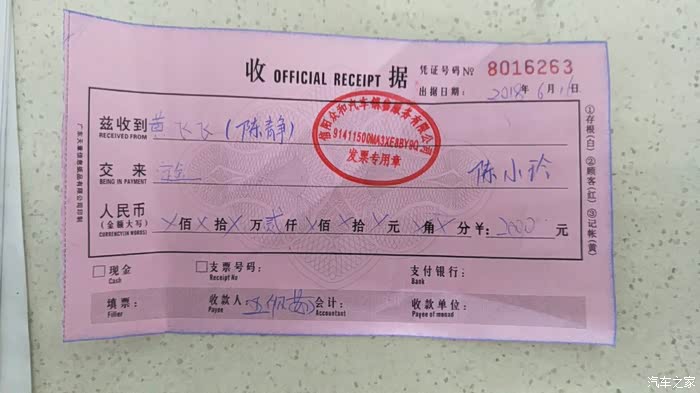 收 OFFICIAL RECEIPT 据
凭证号码 № 8016263
出据日期: 2018年6月1日
兹收到 黄飞飞(陈静)
RECEIVED FROM
信阳众和汽车销售服务有限公司
91411500MA3XE8BY9Q
发票专用章
交 来 定金 陈小玲
BEING IN PAYMENT
人民币 佰 拾 万 贰仟 佰 拾 元 角 分 ¥: 2000 元
(金额大写)
CURRENCY(IN WORDS)
现金 支票号码: 支付银行:
Cash Receipt No Bank
填票: 收款人 会计: 收款单位:
Filler Payee Accountant Payee of monad
①存根(白) ②顾客(红) ③记帐(黄)
汽车之家